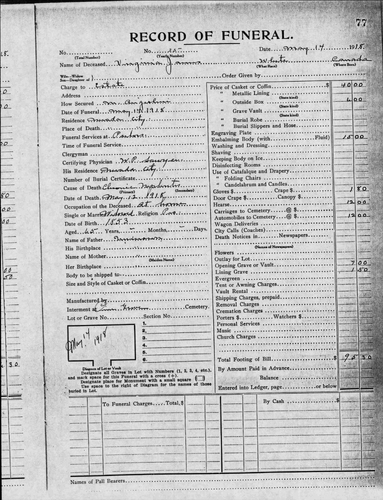 77
RECORD OF FUNERAL.
No. No. Date May 14 1918
(Total Number) (Yearly Number)
Name of Deceased Virginia White Canada
(What Race) (Where Born)
Order Given by
Charge to Estate
Address
How Secured
Date of Funeral May 14 1918
Residence City
Place of Death
Funeral Services at Parlors
Time of Funeral Service
Clergyman
Certifying Physician W.P.
His Residence City
Number of Burial Certificate
Cause of Death Chronic Nephritis
Date of Death May 12, 1918
Occupation of the Deceased At Home
Single or Married Widowed Religion
Date of Birth 1853
Aged 65 Years Months Days
Name of Father
His Birthplace
Name of Mother
Her Birthplace
Body to be shipped to
Size and Style of Casket or Coffin
Manufactured by
Interment at Cemetery.
Lot or Grave No. Section No.
1.
2.
3.
4.
5.
May 14 1918
Diagram of Lot or Vault
Designate all Graves in Lot with Numbers (1, 2, 3, 4, etc.)
and mark space for this Funeral with a cross (+).
Designate place for Monument with a small square
Use space to the right of Diagram for the names of those
buried in Lot.
Price of Casket or Coffin $ 40 00
" Metallic Lining
" Outside Box 6 00
" Grave Vault
" Burial Robe
" Burial Slippers and Hose
Engraving Plate
Embalming Body (with Fluid) 15 00
Washing and Dressing
Shaving
Keeping Body on Ice
Disinfecting Rooms
Use of Catafalque and Drapery
" Folding Chairs
" Candelabrum and Candles
Gloves $ Crape $ 1 80
Door Crape $ Canopy $
Hearse 12 00
Carriages to Cemetery @ $
Automobiles to Cemetery @ $ 12 00
Wagon Deliveries
City Calls (Coaches)
Death Notices in Newspapers
(Names of Newspapers)
Flowers
Outlay for Lot
Opening Grave or Vault 7 00
Lining Grave 1 50
Evergreen
Tent or Awning Charges
Vault Rental
Shipping Charges, prepaid
Removal Charges
Cremation Charges
Porters $ Watchers $
Personal Services
Music
Church Charges
Total Footing of Bill $ 95 30
By Amount Paid in Advance
Balance
Entered into Ledger, page or below
To Funeral Charges Total, $ By Cash $
Names of Pall Bearers